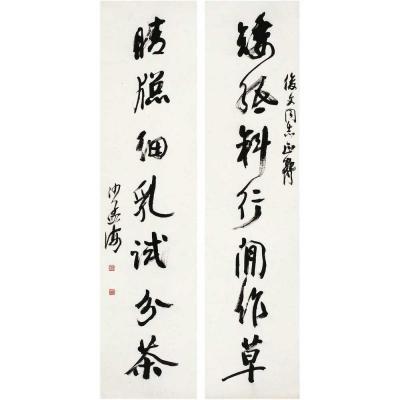 矮纸斜行闲作草
俊文同志正腕
晴窗细乳试分茶
沙孟海